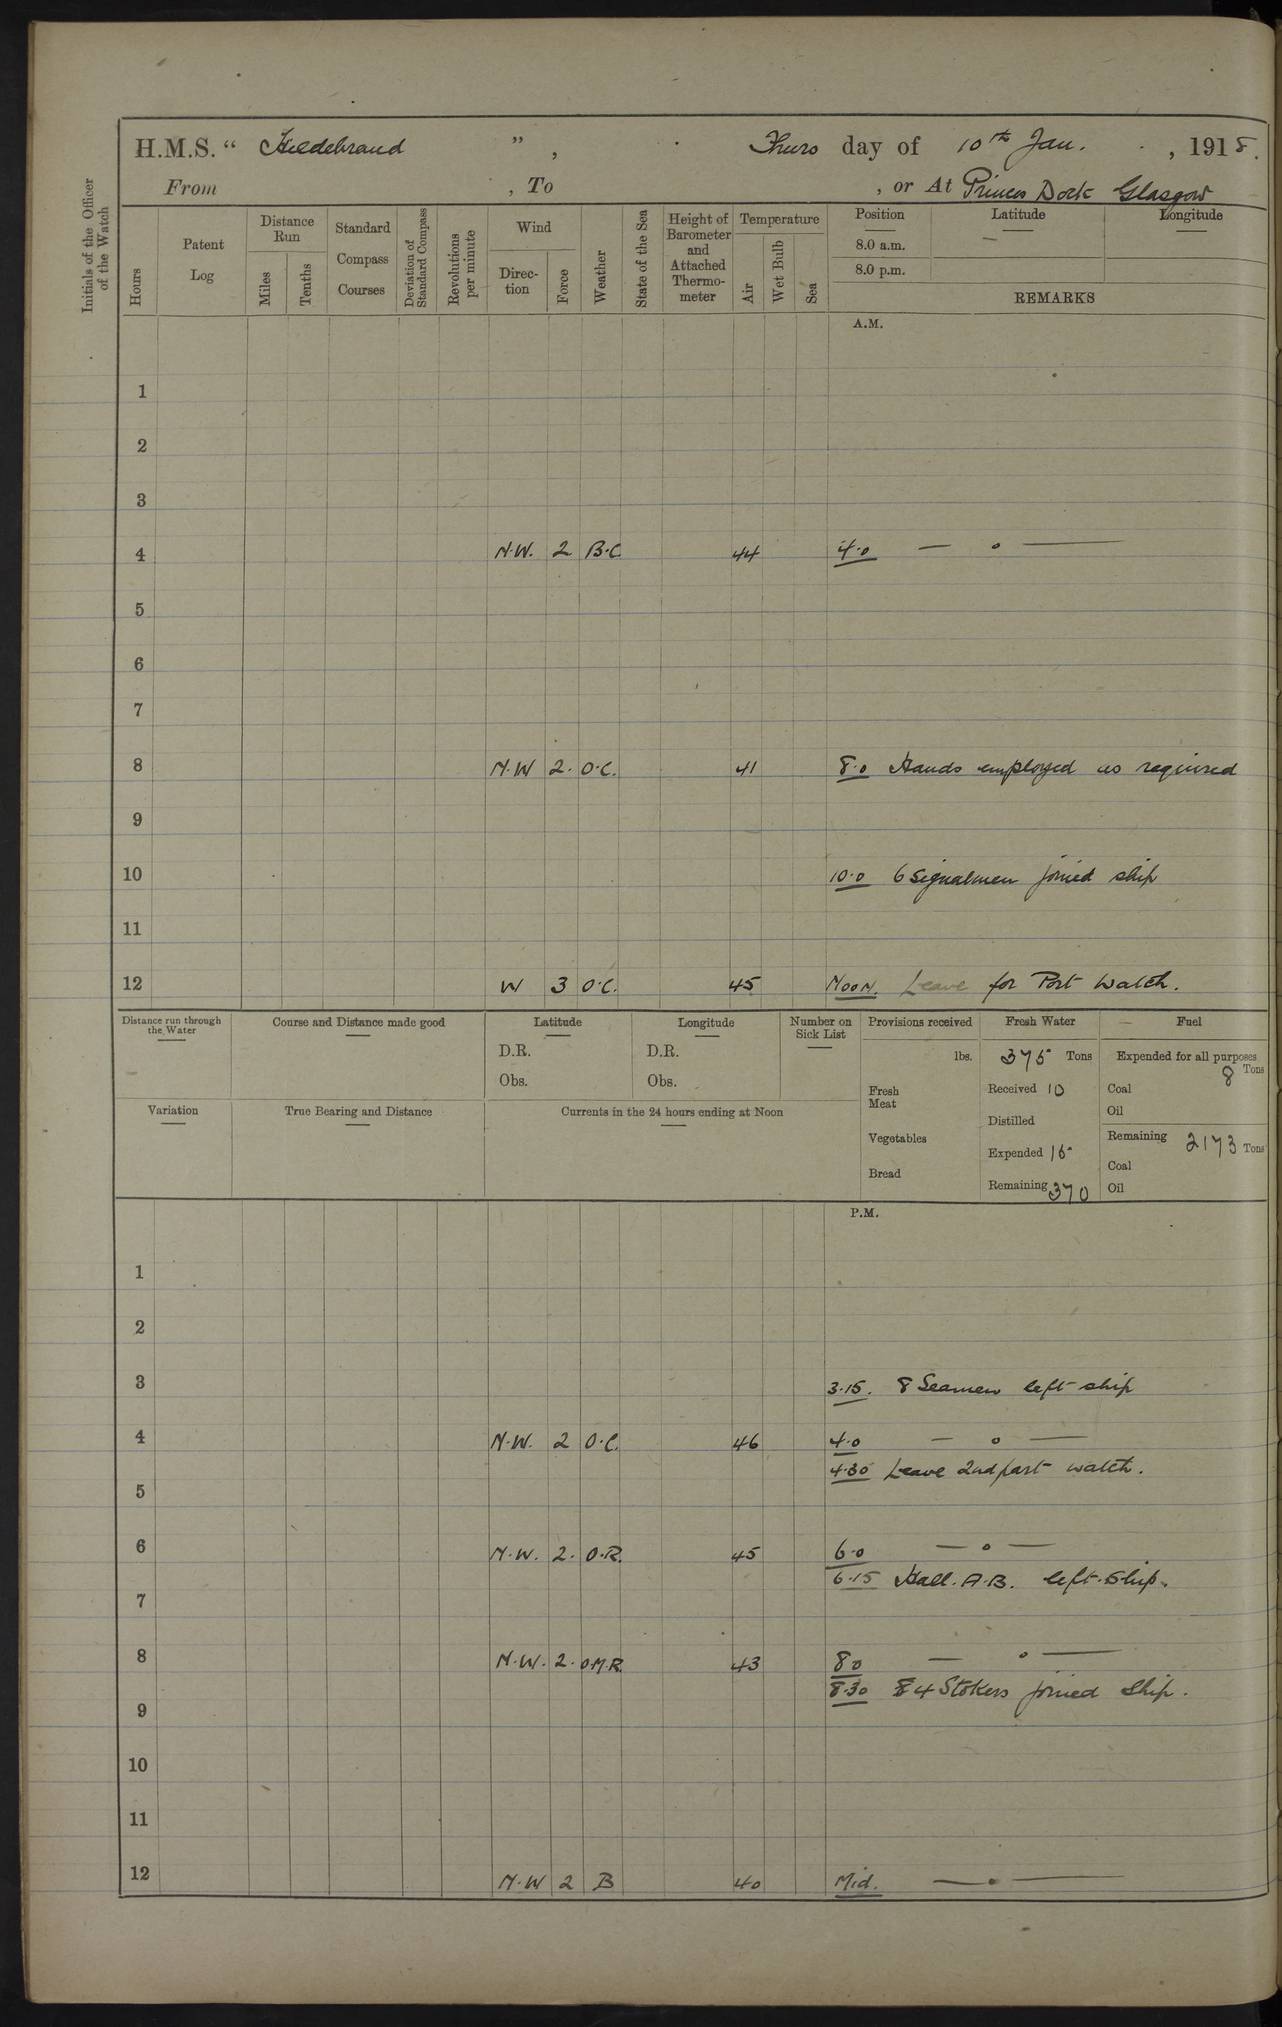 H.M.S. “ Hildebrand ” , Thurs day of 10th Jan. , 1918.
From , To , or At Princes Dock Glasgow
Initials of the Officer of the Watch
Hours
Patent Log
Distance Run
Miles
Tenths
Standard Compass Courses
Deviation of Standard Compass
Revolutions per minute
Wind
Direc-tion
Force
Weather
State of the Sea
Height of Barometer and Attached Thermo-meter
Temperature
Air
Wet Bulb
Sea
Position Latitude Longitude
8.0 a.m.
8.0 p.m.
REMARKS
A.M.
1
2
3
4 N.W. 2 B.C. 44 4.0 — o —
5
6
7
8 N.W 2. O.C. 41 8.0 Hands employed as required
9
10 10.0 6 Signalmen joined ship
11
12 W 3 O.C. 45 Noon. Leave for Port Watch.
Distance run through the Water
Course and Distance made good
Latitude
D.R.
Obs.
Longitude
D.R.
Obs.
Number on Sick List
Provisions received
lbs.
Fresh Meat
Vegetables
Bread
Fresh Water
375 Tons
Received 10
Distilled
Expended 15
Remaining 370
Fuel
Expended for all purposes
8 Tons
Coal
Oil
Remaining 2173 Tons
Coal
Oil
Variation
True Bearing and Distance
Currents in the 24 hours ending at Noon
P.M.
1
2
3 3.15. 8 Seamen left ship
4 N.W. 2 O.C. 46 4.0 — o —
4.30 Leave 2nd part watch.
5
6 N.W. 2. O.R. 45 6.0 — o —
6.15 Hall. A.B. left Ship.
7
8 N.W. 2. O.M.R. 43 8.0 — o —
8.30 84 Stokers joined Ship.
9
10
11
12 N.W 2 B 40 Mid. — o —